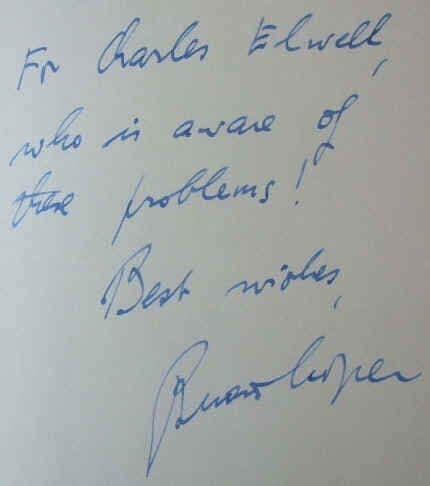 For Charles Elwell,
who is aware of
these problems!
Best wishes,